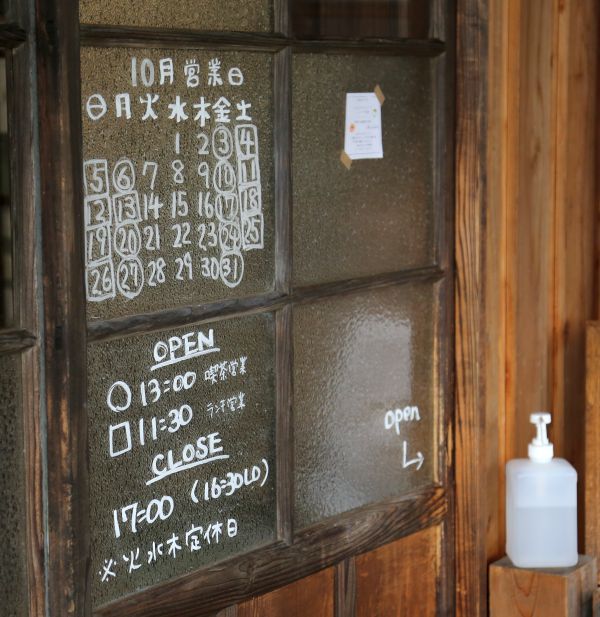 10月営業日
日月火水木金土
1 2 3 4
5 6 7 8 9 10 11
12 13 14 15 16 17 18
19 20 21 22 23 24 25
26 27 28 29 30 31
OPEN
○ 13:00 喫茶営業
□ 11:30 ランチ営業
CLOSE
17:00 (16:30LO)
※火水木定休日
open